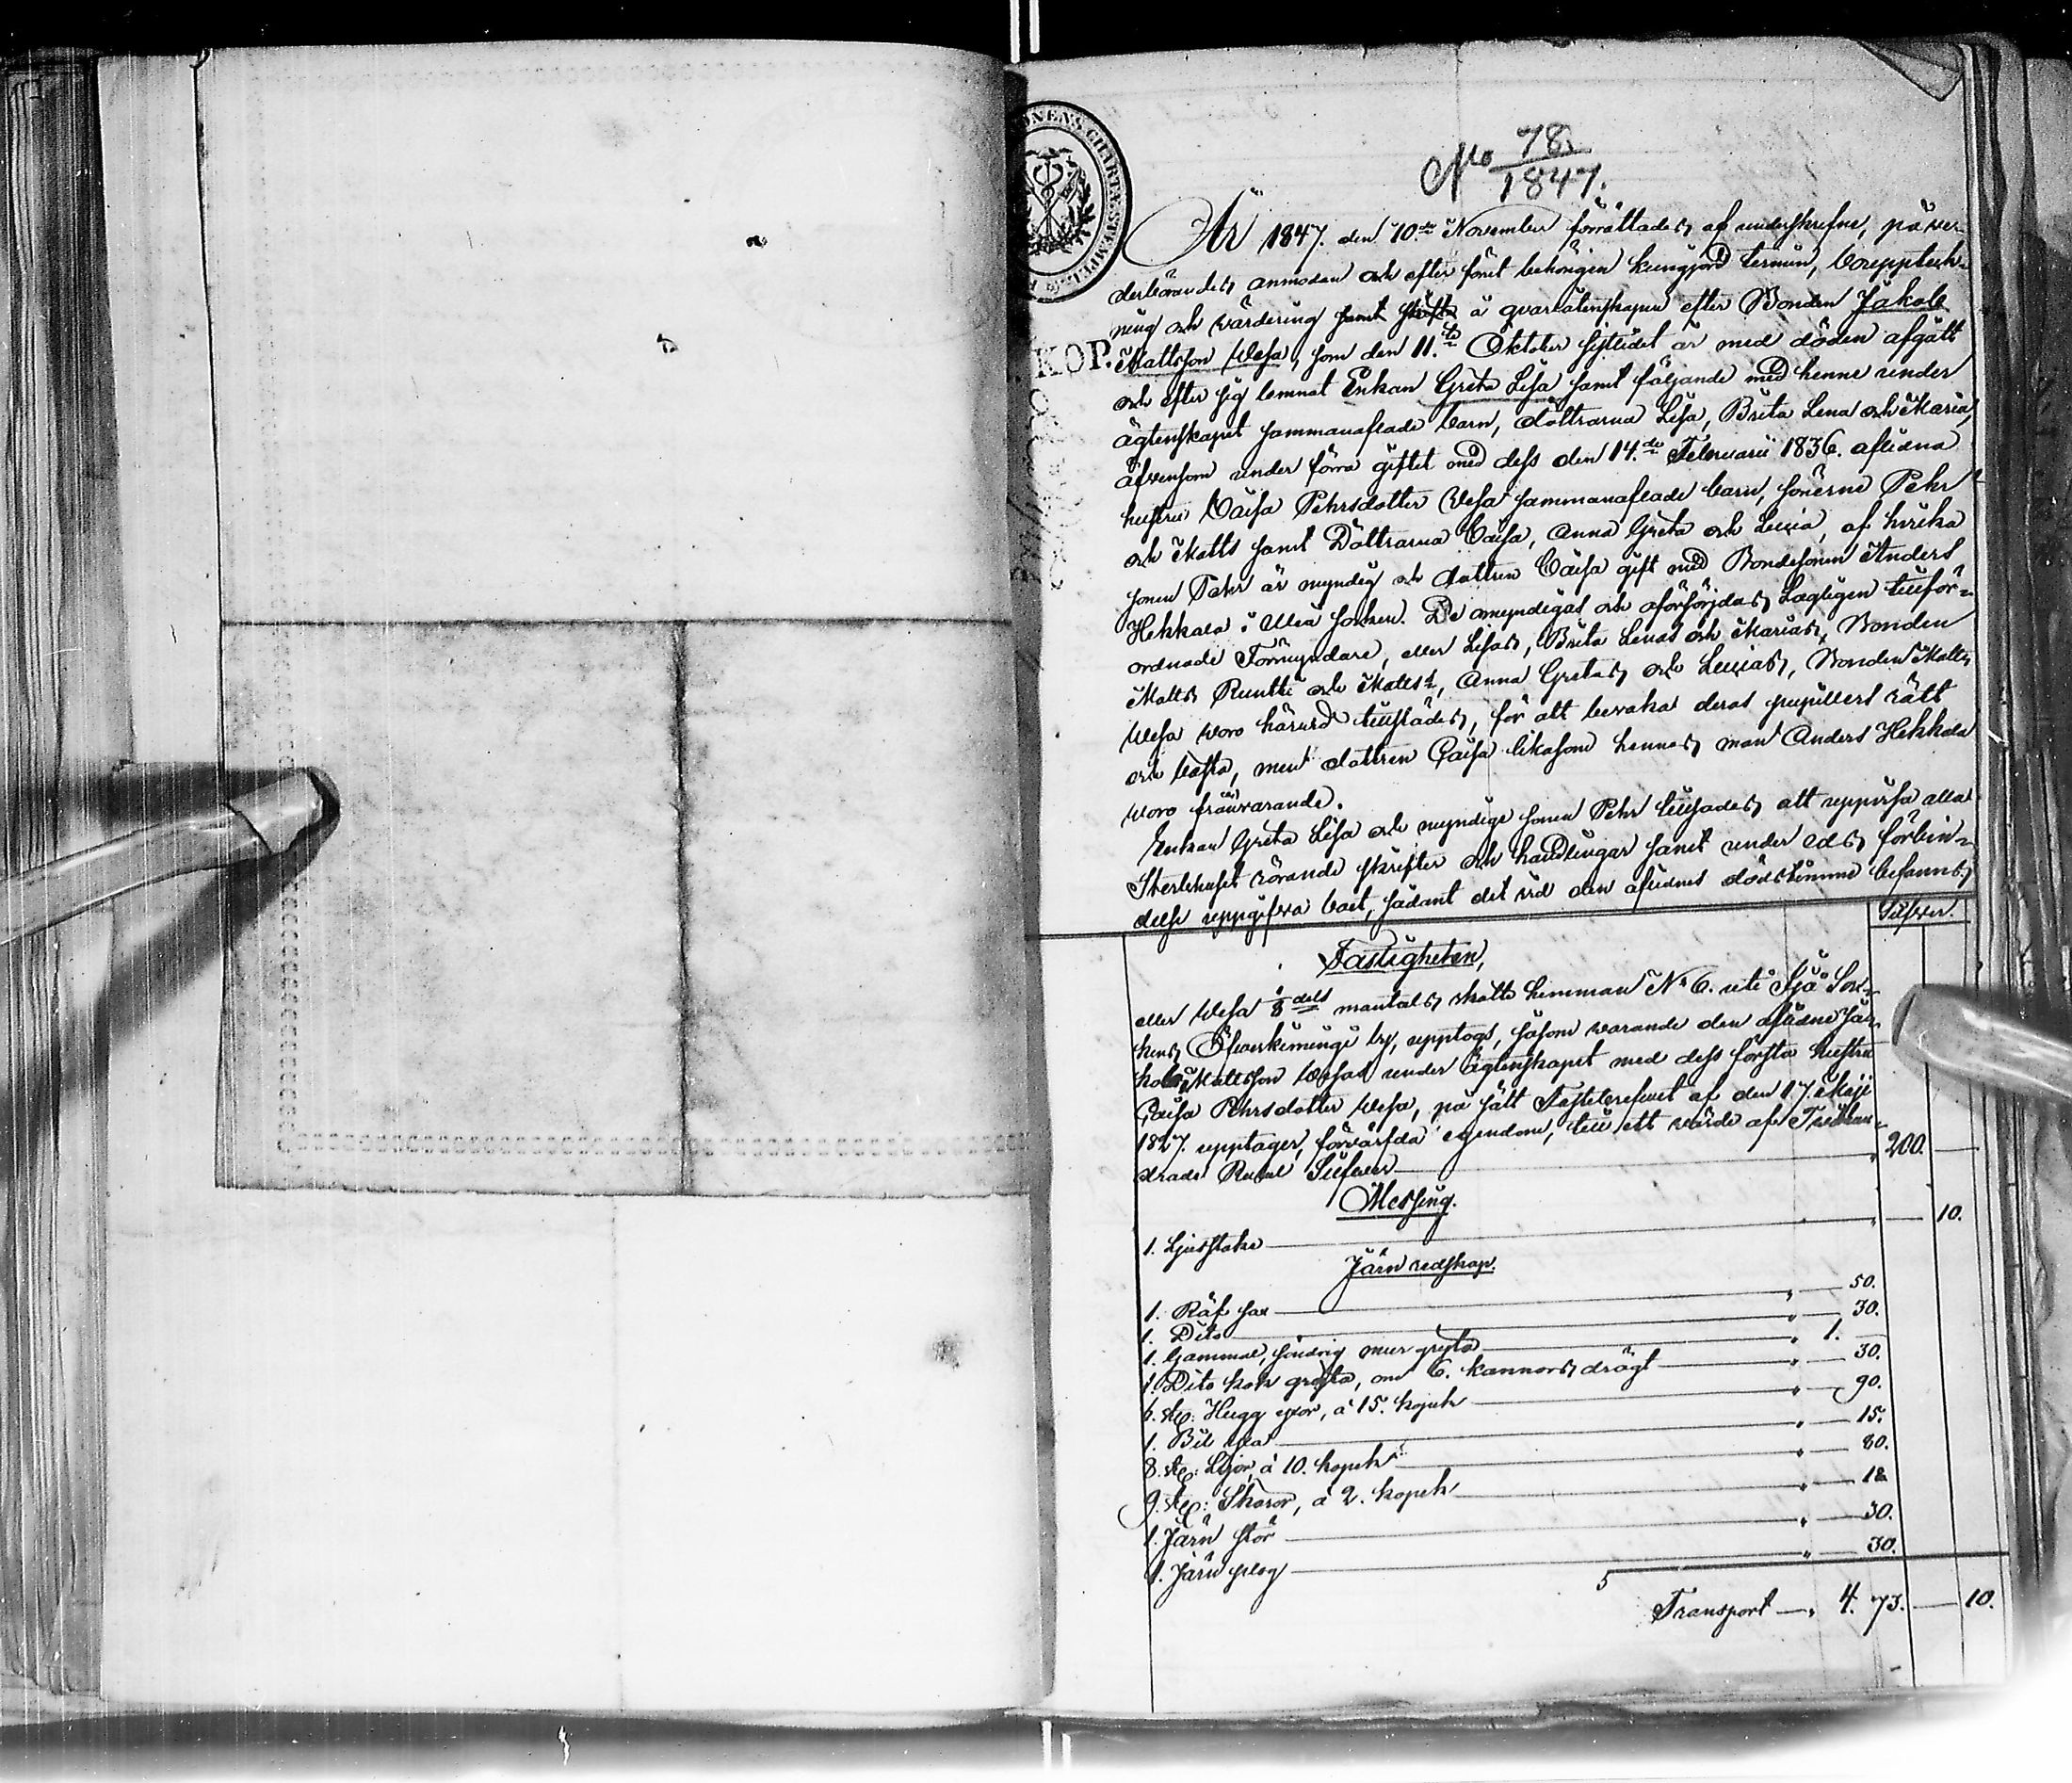 No 78/1847.
År 1847. den 10.de November förrättades af underskrefne, på ve-
derbörandes anmodan och efter förut behörigen kungjord termin, bouppteck-
ning och värdering samt skifte å qvarlåtenskapen efter Bonden Jakob
KOP.
Mattsson Wesa, som den 11.te Oktober sistlidet år med döden afgått
och efter sig lemnat Enkan Greta Lisa samt följande med henne under
ägtenskapet sammanaflade barn, döttrarna Lisa, Brita Lena och Maria,
äfvensom under förra giftet med dess den 14.de Februarii 1836. aflidna
hustru Caisa Pehrsdotter Wesa sammanaflade barn, sönerne Pehr
och Matts samt Döttrarna Caisa, Anna Greta och Lucia, af hvilka
sonen Pehr är myndig och dottren Caisa gift med Bondesonen Anders
Hekkala i Uleå socken. De omyndigas och oförsörjdas Lagligen tillför-
ordnade Förmyndare, eller Lisas, Brita Lenas och Marias, Bonden
Matts Runtti och Matts's, Anna Gretas och Lucias, Bonden Matts
Wesa voro härvid tillstädes, för att bevaka deras pupillers rätt
och bästa, men dottren Caisa likasom hennes man Anders Hekkala
voro frånvarande.
Enkan Greta Lisa och myndige sonen Pehr tillsades att uppvisa alla
Sterbhuset rörande skrifter och handlingar samt under eds förbin-
delse uppgifva boet, sådant det vid den aflidnes dödstimme befanns,
Silfver.
Fastigheten,
eller Wesa 1/8 dels mantals skatte hemman No 6. uti Ijå Soc-
kens Öfverkiminge by, upptogs, såsom varande den aflidne Ja-
kob Mattsson Wesas under ägtenskapet med dess första hustru
Caisa Pehrsdotter Wesa, på sätt Fastebrefvet af den 17. Maji
1827. upptager, förvärfda egendom, till ett värde af Tvåhun-
drade Rubel Silfver 200.
Messing.
1. Ljusstake 10.
Järn redskap.
1. Räf sax 50.
1. Dito 30.
1. Gammal, söndrig mur gryta 1.
1. Dito kok gryta, om 6. kannors drägt 30.
6. st: Hugg yxor, à 15. kopek 90.
1. Bil yxa 15.
8. st: Lijor, à 10. kopek 80.
9. st: Skäror, à 2. kopek 18
1. Järn stör 30.
1. Järn plog 30.
Transport 4. 73. 10.